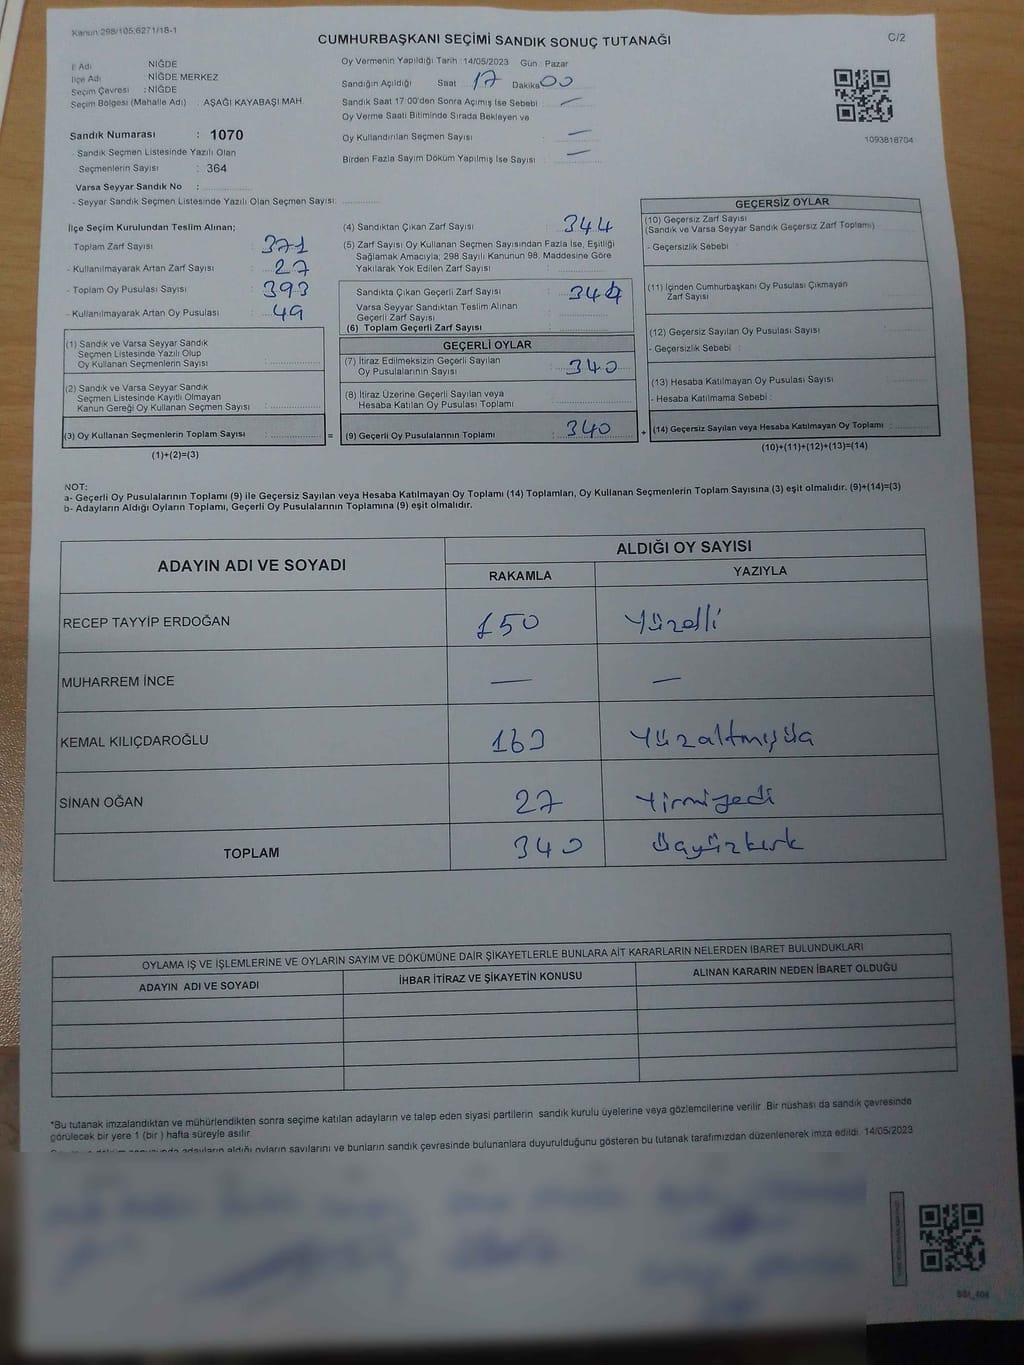 Kanun:298/105;6271/18-1
CUMHURBAŞKANI SEÇİMİ SANDIK SONUÇ TUTANAĞI
C/2
İl Adı NİĞDE
İlçe Adı NİĞDE MERKEZ
Seçim Çevresi : NİĞDE
Seçim Bölgesi (Mahalle Adı) : AŞAĞI KAYABAŞI MAH.
Sandık Numarası : 1070
- Sandık Seçmen Listesinde Yazılı Olan
Seçmenlerin Sayısı : 364
Varsa Seyyar Sandık No :
- Seyyar Sandık Seçmen Listesinde Yazılı Olan Seçmen Sayısı:
Oy Vermenin Yapıldığı Tarih : 14/05/2023 Gün : Pazar
Sandığın Açıldığı Saat 17 Dakika 00
Sandık Saat 17:00'den Sonra Açımış İse Sebebi : —
Oy Verme Saati Bitiminde Sırada Bekleyen ve
Oy Kullandırılan Seçmen Sayısı : —
Birden Fazla Sayım Döküm Yapılmış İse Sayısı : —
1093818704
İlçe Seçim Kurulundan Teslim Alınan;
Toplam Zarf Sayısı : 371
- Kullanılmayarak Artan Zarf Sayısı : 27
- Toplam Oy Pusulası Sayısı : 393
- Kullanılmayarak Artan Oy Pusulası : 49
(1) Sandık ve Varsa Seyyar Sandık
Seçmen Listesinde Yazılı Olup
Oy Kullanan Seçmenlerin Sayısı :
(2) Sandık ve Varsa Seyyar Sandık
Seçmen Listesinde Kayıtlı Olmayan
Kanun Gereği Oy Kullanan Seçmen Sayısı :
(3) Oy Kullanan Seçmenlerin Toplam Sayısı : =
(1)+(2)=(3)
(4) Sandıktan Çıkan Zarf Sayısı : 344
(5) Zarf Sayısı Oy Kullanan Seçmen Sayısından Fazla İse, Eşitliği
Sağlamak Amacıyla; 298 Sayılı Kanunun 98. Maddesine Göre
Yakılarak Yok Edilen Zarf Sayısı :
Sandıkta Çıkan Geçerli Zarf Sayısı : 344
Varsa Seyyar Sandıktan Teslim Alınan
Geçerli Zarf Sayısı :
(6) Toplam Geçerli Zarf Sayısı :
GEÇERLİ OYLAR
(7) İtiraz Edilmeksizin Geçerli Sayılan
Oy Pusulalarının Sayısı : 340
(8) İtiraz Üzerine Geçerli Sayılan veya
Hesaba Katılan Oy Pusulası Toplamı :
(9) Geçerli Oy Pusulalarının Toplamı : 340 +
GEÇERSİZ OYLAR
(10) Geçersiz Zarf Sayısı
(Sandık ve Varsa Seyyar Sandık Geçersiz Zarf Toplamı)
- Geçersizlik Sebebi :
(11) İçinden Cumhurbaşkanı Oy Pusulası Çıkmayan
Zarf Sayısı :
(12) Geçersiz Sayılan Oy Pusulası Sayısı :
- Geçersizlik Sebebi :
(13) Hesaba Katılmayan Oy Pusulası Sayısı :
- Hesaba Katılmama Sebebi :
(14) Geçersiz Sayılan veya Hesaba Katılmayan Oy Toplamı :
(10)+(11)+(12)+(13)=(14)
NOT:
a- Geçerli Oy Pusulalarının Toplamı (9) ile Geçersiz Sayılan veya Hesaba Katılmayan Oy Toplamı (14) Toplamları, Oy Kullanan Seçmenlerin Toplam Sayısına (3) eşit olmalıdır. (9)+(14)=(3)
b- Adayların Aldığı Oyların Toplamı, Geçerli Oy Pusulalarının Toplamına (9) eşit olmalıdır.
ADAYIN ADI VE SOYADI
ALDIĞI OY SAYISI
RAKAMLA YAZIYLA
RECEP TAYYİP ERDOĞAN 150 Yüzelli
MUHARREM İNCE — —
KEMAL KILIÇDAROĞLU 163 Yüzaltmışüç
SİNAN OĞAN 27 Yirmiyedi
TOPLAM 340 Üçyüzkırk
OYLAMA İŞ VE İŞLEMLERİNE VE OYLARIN SAYIM VE DÖKÜMÜNE DAİR ŞİKAYETLERLE BUNLARA AİT KARARLARIN NELERDEN İBARET BULUNDUKLARI
ADAYIN ADI VE SOYADI İHBAR İTİRAZ VE ŞİKAYETİN KONUSU ALINAN KARARIN NEDEN İBARET OLDUĞU
*Bu tutanak imzalandıktan ve mühürlendikten sonra seçime katılan adayların ve talep eden siyasi partilerin sandık kurulu üyelerine veya gözlemcilerine verilir. Bir nüshası da sandık çevresinde
görülecek bir yere 1 (bir) hafta süreyle asılır.
adayların aldığı oyların sayılarını ve bunların sandık çevresinde bulunanlara duyurulduğunu gösteren bu tutanak tarafımızdan düzenlenerek imza edildi. 14/05/2023